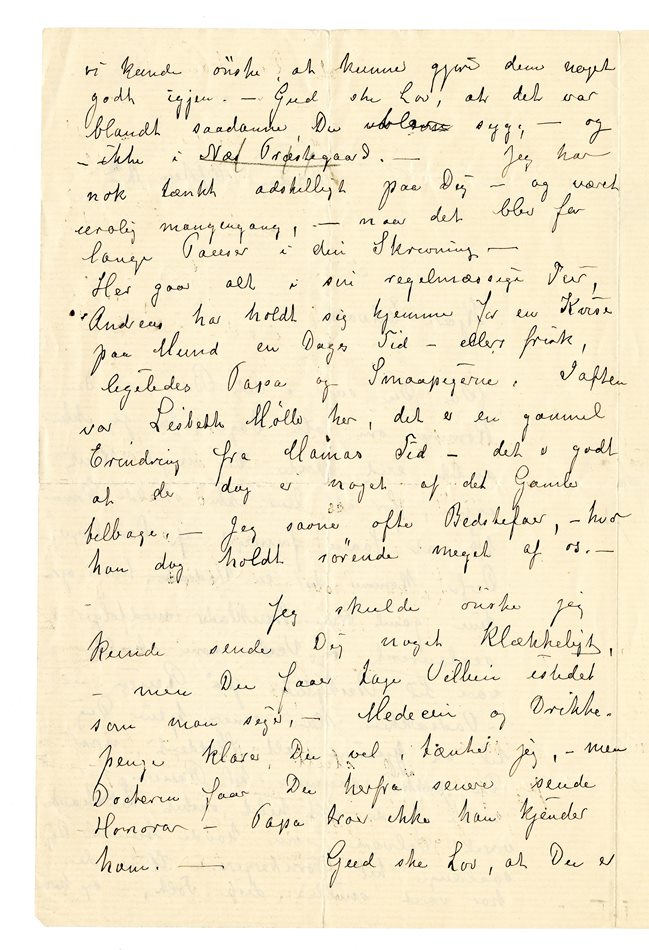 vi kunde önske, at kunne gjøre dem noget
godt igjen. — Gud ske Lov, at det var
blandt saadanne, Du syg, — og
— ikke i Næs Præstegaard. — Jeg har
nok tænkt adskilligt paa Dig — og været
urolig mangengang, — naar det blev for
lange Pauser i din Skrivning —
Her gaar alt i sin regelmæssige Tur,
Andreas har holdt sig hjemme for en Kvise
paa Mund en Dages Tid — ellers frisk,
ligeledes Papa og Smaapigerne. Iaften
var Lisbeth Mølle her, det er en gammel
Erindring fra Mamas Tid — det er godt
at der dog er noget af det Gamle
tilbage. — Jeg savner ofte Bedstefaer, — hvor
han dog holdt rørende meget af os. —
— Jeg skulde önske jeg
kunde sende Dig noget klækkeligt,
— men Du faar tage Villien istedet
som man siger, — Medecin og Drikke-
penge klarer Du vel, tænker jeg, — men
Doctoren faar Du herfra senere sende
Honorar — Papa tror ikke han kjender
ham. — Gud ske Lov, at Du er